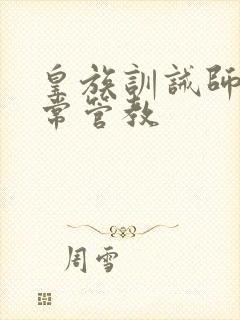 皇族訓誡師
常管教
周雪